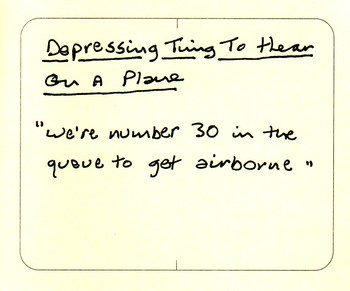 Depressing Ting To Hear
On A Plane
"we're number 30 in the
queue to get airborne"